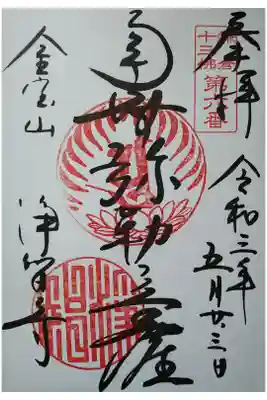 奉拝
鎌倉
十三佛
第六番
令和三年五月廿三日
南無弥勒菩薩
金宝山
浄智寺